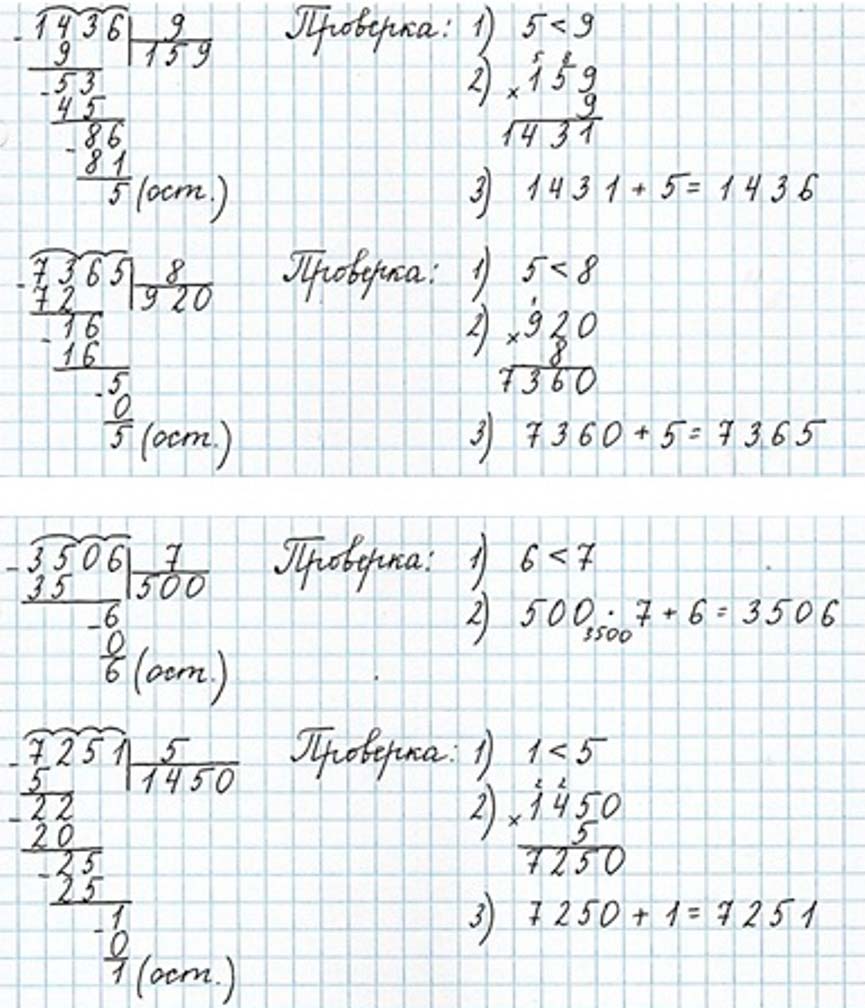 - 1436 | 9 Проверка: 1) 5 < 9
9 | 159 2) × 159 (5 8)
- 53 9
45 1431
- 86
81
5 (ост.) 3) 1431 + 5 = 1436
- 7365 | 8 Проверка: 1) 5 < 8
72 | 920 2) × 920 (1)
- 16 8
16 7360
- 5
0
5 (ост.) 3) 7360 + 5 = 7365
- 3506 | 7 Проверка: 1) 6 < 7
35 | 500 2) 500 · 7 + 6 = 3506
- 6 3500
0
6 (ост.)
- 7251 | 5 Проверка: 1) 1 < 5
5 | 1450 2) × 1450 (2 2)
- 22 5
20 7250
- 25
25
- 1 3) 7250 + 1 = 7251
0
1 (ост.)